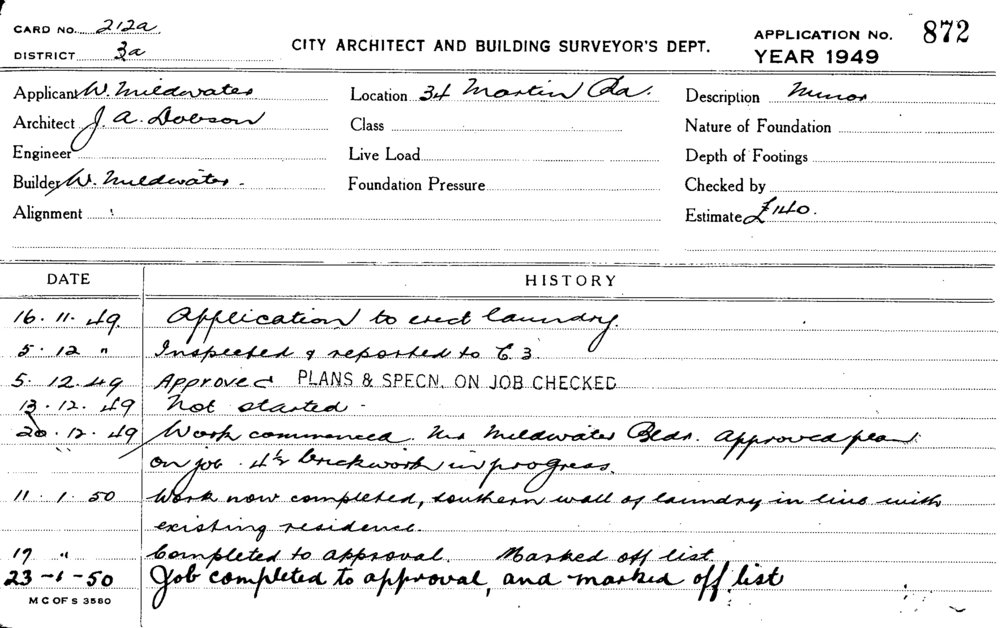 CARD NO. 212a
DISTRICT 3a
CITY ARCHITECT AND BUILDING SURVEYOR'S DEPT.
APPLICATION NO. 872
YEAR 1949
Applicant W. Mildwater Location 34 Martin Rd. Description Minor
Architect J. A. Dobson Class Nature of Foundation
Engineer Live Load Depth of Footings
Builder W. Mildwater. Foundation Pressure Checked by
Alignment Estimate £140.
DATE HISTORY
16.11.49. Application to erect laundry.
5.12 " Inspected & reported to C3.
5.12.49 Approved PLANS & SPECN. ON JOB CHECKED
13.12.49 Not started.
20.12.49 Work commenced. Mr Mildwater Bldr. approved plan
on job. 4½ brickwork in progress.
11.1.50 Work now completed, southern wall of laundry in line with
existing residence.
19 " Completed to approval. Marked off list.
23-1-50 Job completed to approval, and marked off list
M C OF S 3580